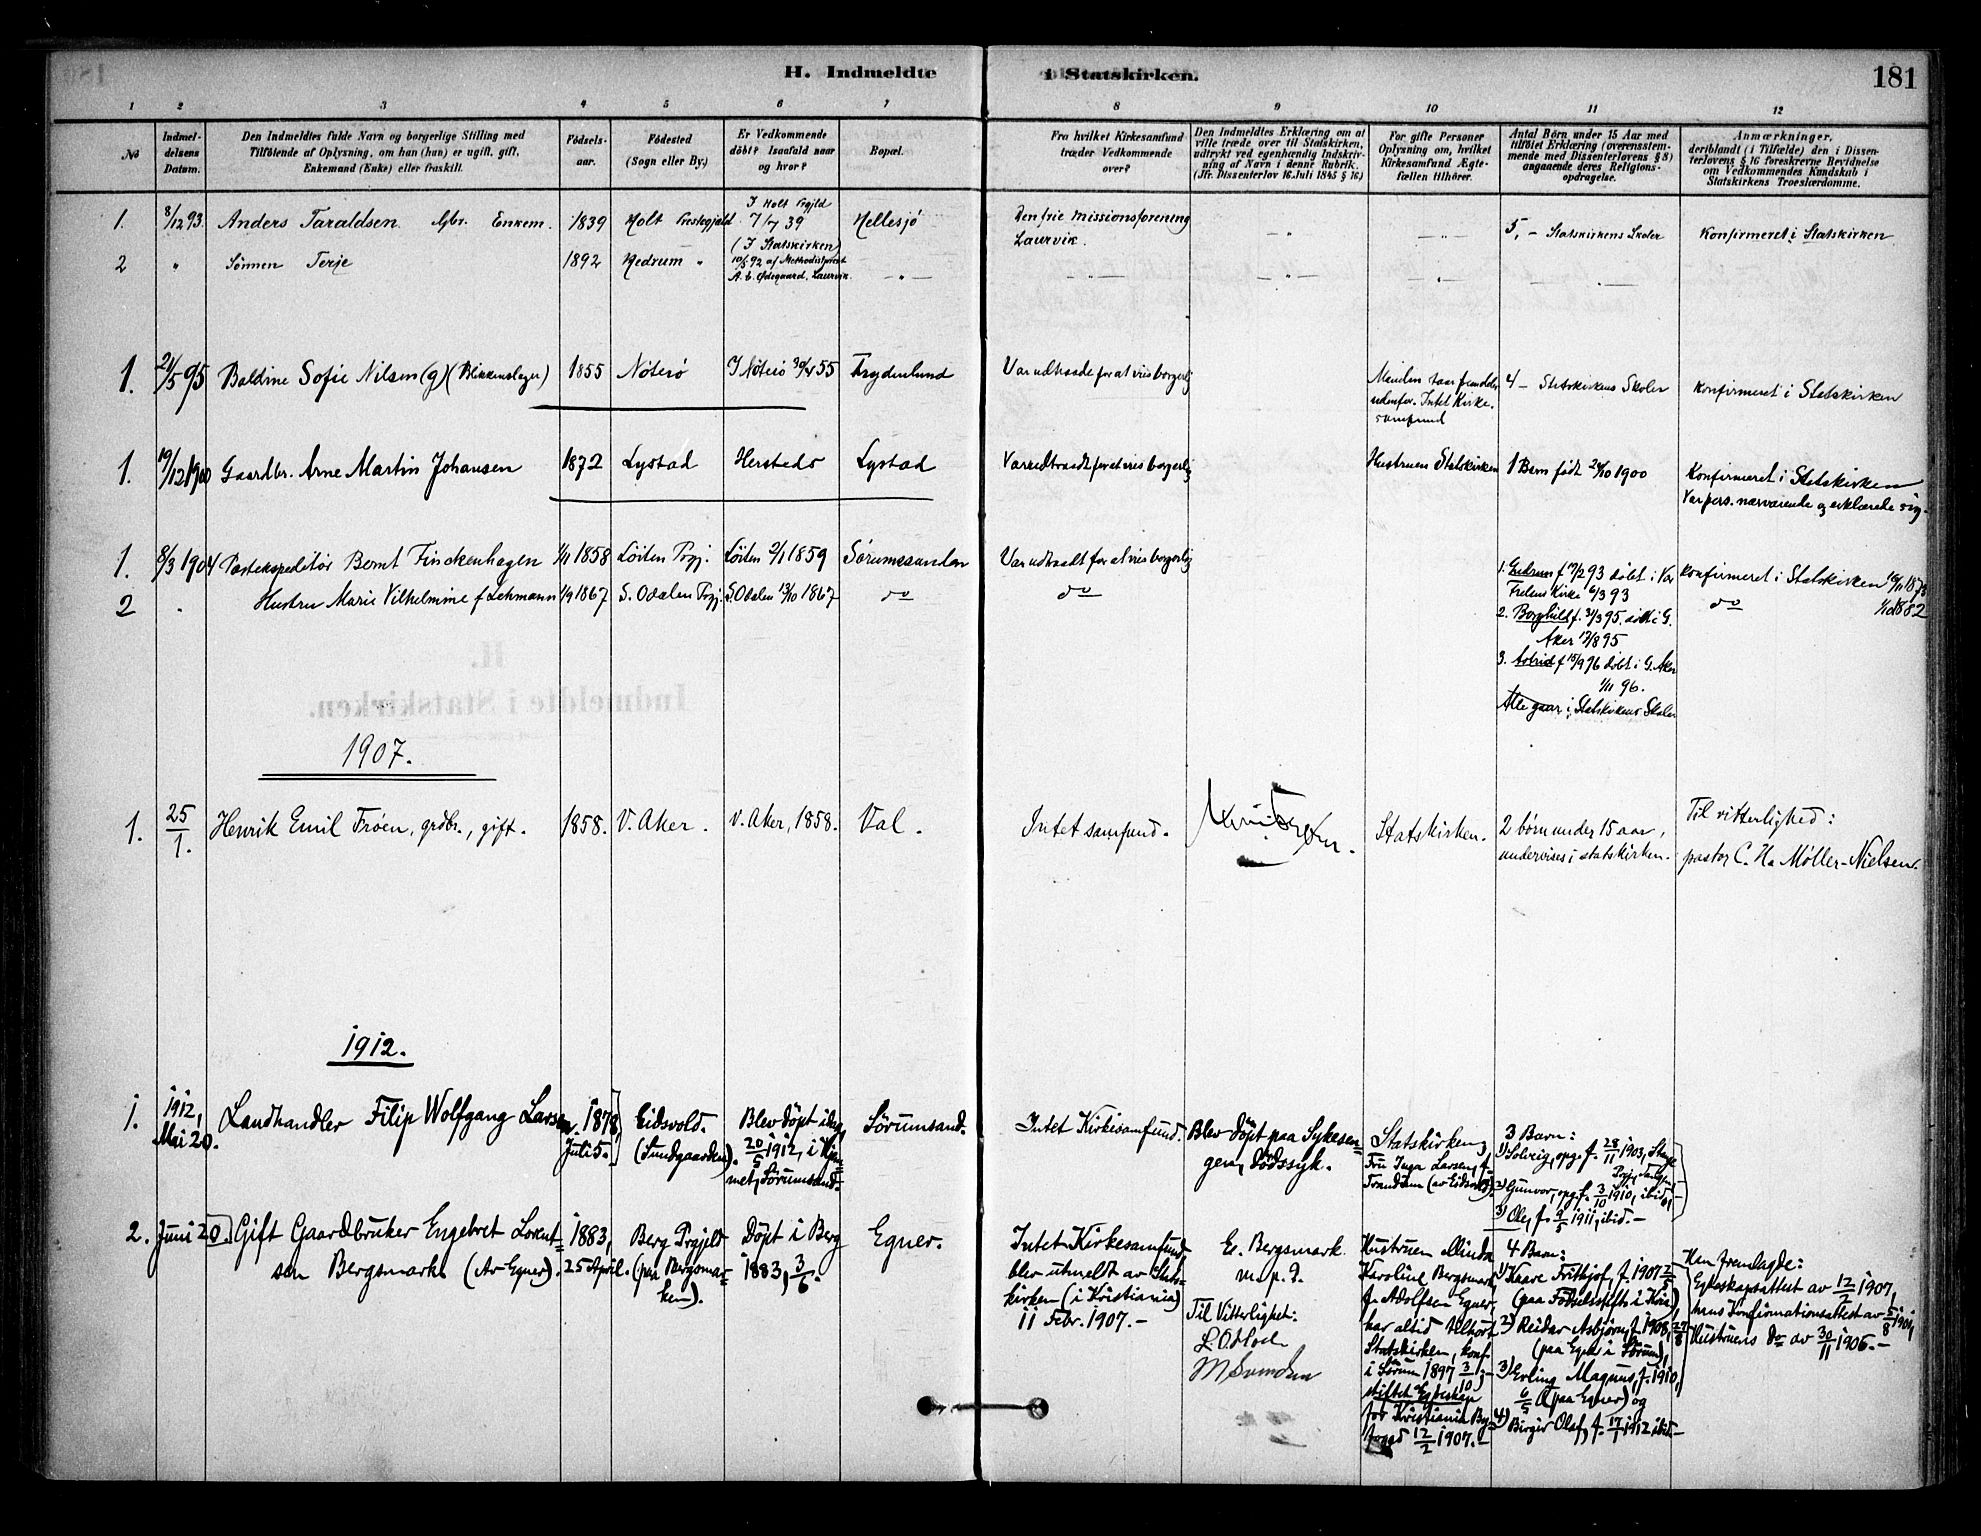 H. Indmeldte i Statskirken. 181
1 2 3 4 5 6 7 8 9 10 11 12
No
Indmel-
delsens
Datum.
Den Indmeldtes fulde Navn og borgerlige Stilling med
Tilføiende af Oplysning, om han (hun) er ugift, gift,
Enkemand (Enke) eller fraskilt.
Fødsels-
aar.
Fødested
(Sogn eller By.)
Er Vedkommende
døbt? Isaafald naar
og hvor?
Bopæl.
Fra hvilket Kirkesamfund
træder Vedkommende
over?
Den Indmeldtes Erklæring om at
ville træde over til Statskirken,
udtrykt ved egenhændig Indskriv-
ning af Navn i denne Rubrik.
(Jfr. Dissenterlov 16 Juli 1845 § 16)
For gifte Personer
Oplysning om, hvilket
Kirkesamfund Ægte-
fællen tilhører.
Antal Børn under 15 Aar med
tilføiet Erklæring (overensstem-
mende med Dissenterlovens § 8)
angaaende deres Religions-
opdragelse.
Anmærkninger,
deriblandt (i Tilfælde) den i Dissen-
terlovens § 16 foreskrevne Bevidnelse
om Vedkommendes Kundskab i
Statskirkens Troeslærdomme.
1. 8/12 93. Anders Taraldsen. Gbr. Enkem. 1839 Holt Prestegjeld
I Holt Prgjld
7/7 39
(I Statskirken)
Hellesjø
Den frie Missionsforening
Laurvik.
5, - Statskirkens Skoler
Konfirmeret i Statskirken
2 " Sønnen Terje 1892 Hedrum "
10/5 92 af Methodistprest
A. E. Ødegaard, Laurvik.
1. 21/5 95 Baldine Sofie Nilsen (g) (Blikkenslager) 1855 Nøterø I Nøterø 55 Frydenlund
Var udtraadt for at vies borgerlig
Manden staar fremdeles
udenfor. Intet Kirke-
samfund
4 - Statskirkens Skoler
Konfirmeret i Statskirken
1. 19/12 1900 Gaardbr. Arne Martin Johansen 1872 Lystad Lystad
Var udtraadt for at vies borgerlig
Hustruen Statskirken
1 Barn født 2/10 1900
Konfirmeret i Statskirken
Var pers. nærværende og erklærede sig.
1. 8/3 1904 Postekspeditør Bernt Finckenhagen 1/11 1858 Løiten Prgj. Løiten 2/1 1859 Sørumsanden
Var udtraadt for at vies borgerlig
1. Gudrun f 17/2 93 døbt i Vor
Frelsers Kirke 6/3 93
Konfirmeret i Statskirken
2 Hustru Marie Vilhelmine f Lehmann 1/9 1867 S. Odalen Prgj. S. Odalen 13/10 1867 do do
2. Borghild f. 31/3 95. døbt i G.
Aker 17/8 95
3. Astrid f 15/9 96 døbt i G. Aker
1/11 96.
Alle gaar i Statskirkens Skoler
do
1882
1907.
1. 25/1. Henrik Emil Frøen, grdbr., gift. 1858. V. Aker. V. Aker, 1858. Val.
Intet samfund.
Statskirken.
2 børn under 15 aar,
undervises i statskirken.
Til vitterlighed:
pastor C. H. Møller-Nielsen.
1912.
1. 1912,
Mai 20.
Landhandler Filip Wolfgang Larsen
1878,
Juli 5.
Eidsvold.
(Sundgaarden).
Blev døpt
20/5 1912, i Hjem-
met, Sørumsand.
Sørumsand.
Intet Kirkesamfund.
Blev døpt paa Sykesen-
gen, dødssyk.
Statskirken,
Fru Inga Larsen, f.
3 Barn:
1) Solveig, opg. f. 28/11 1903,
2) Gunvor, opg. f. 3/10 1910, ibid,
3) Ole, f. 9/5 1911, ibid. -
2. Juni 20. Gift Gaardbruker Engebret Lorent-
sen Bergsmark. (Av Egner).
1883,
25 April.
Berg Prgjeld
(paa Bergsmar-
ken).
Døpt i Berg
1883, 3/6.
Egner.
Intet Kirkesamfund,
blev utmeldt av Stats-
kirken (i Kristiania)
11 Febr. 1907. -
E. Bergsmark
m. p. P.
Til Vitterlighet:
M Svendsen
Hustruen Minda
Karoline Bergsmark
f. Adolfsen Egner,
har altid tilhørt
Statskirken, konf.
i Sørum 1897 3/10,
stiftet Egteskap
for Kristiania By-
foged 12/2 1907. -
4 Barn:
1) Kaare Frithjof, f. 1907 2/5
(paa Fødselsstift. i Kria),
2) Reidar Asbjørn, f. 1908, 27/8
(paa Egner i Sørum),
3) Erling Magnus, f. 1910,
6/5 (paa Egner) og
4) Birger Olaf, f. 17/1 1912 ibid. -
Han fremlagde:
Egteskapsattest av 12/2 1907,
hans Konfirmationsattest av 5/8 1901,
Hustruens do av 30/11 1906. -